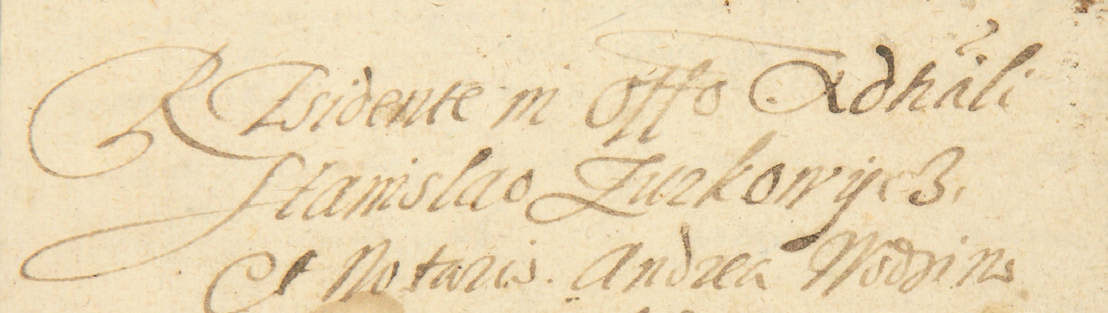 Residente in Offo Advtiali
Stanislao Zurkowycz.
Et Notario. Andrea